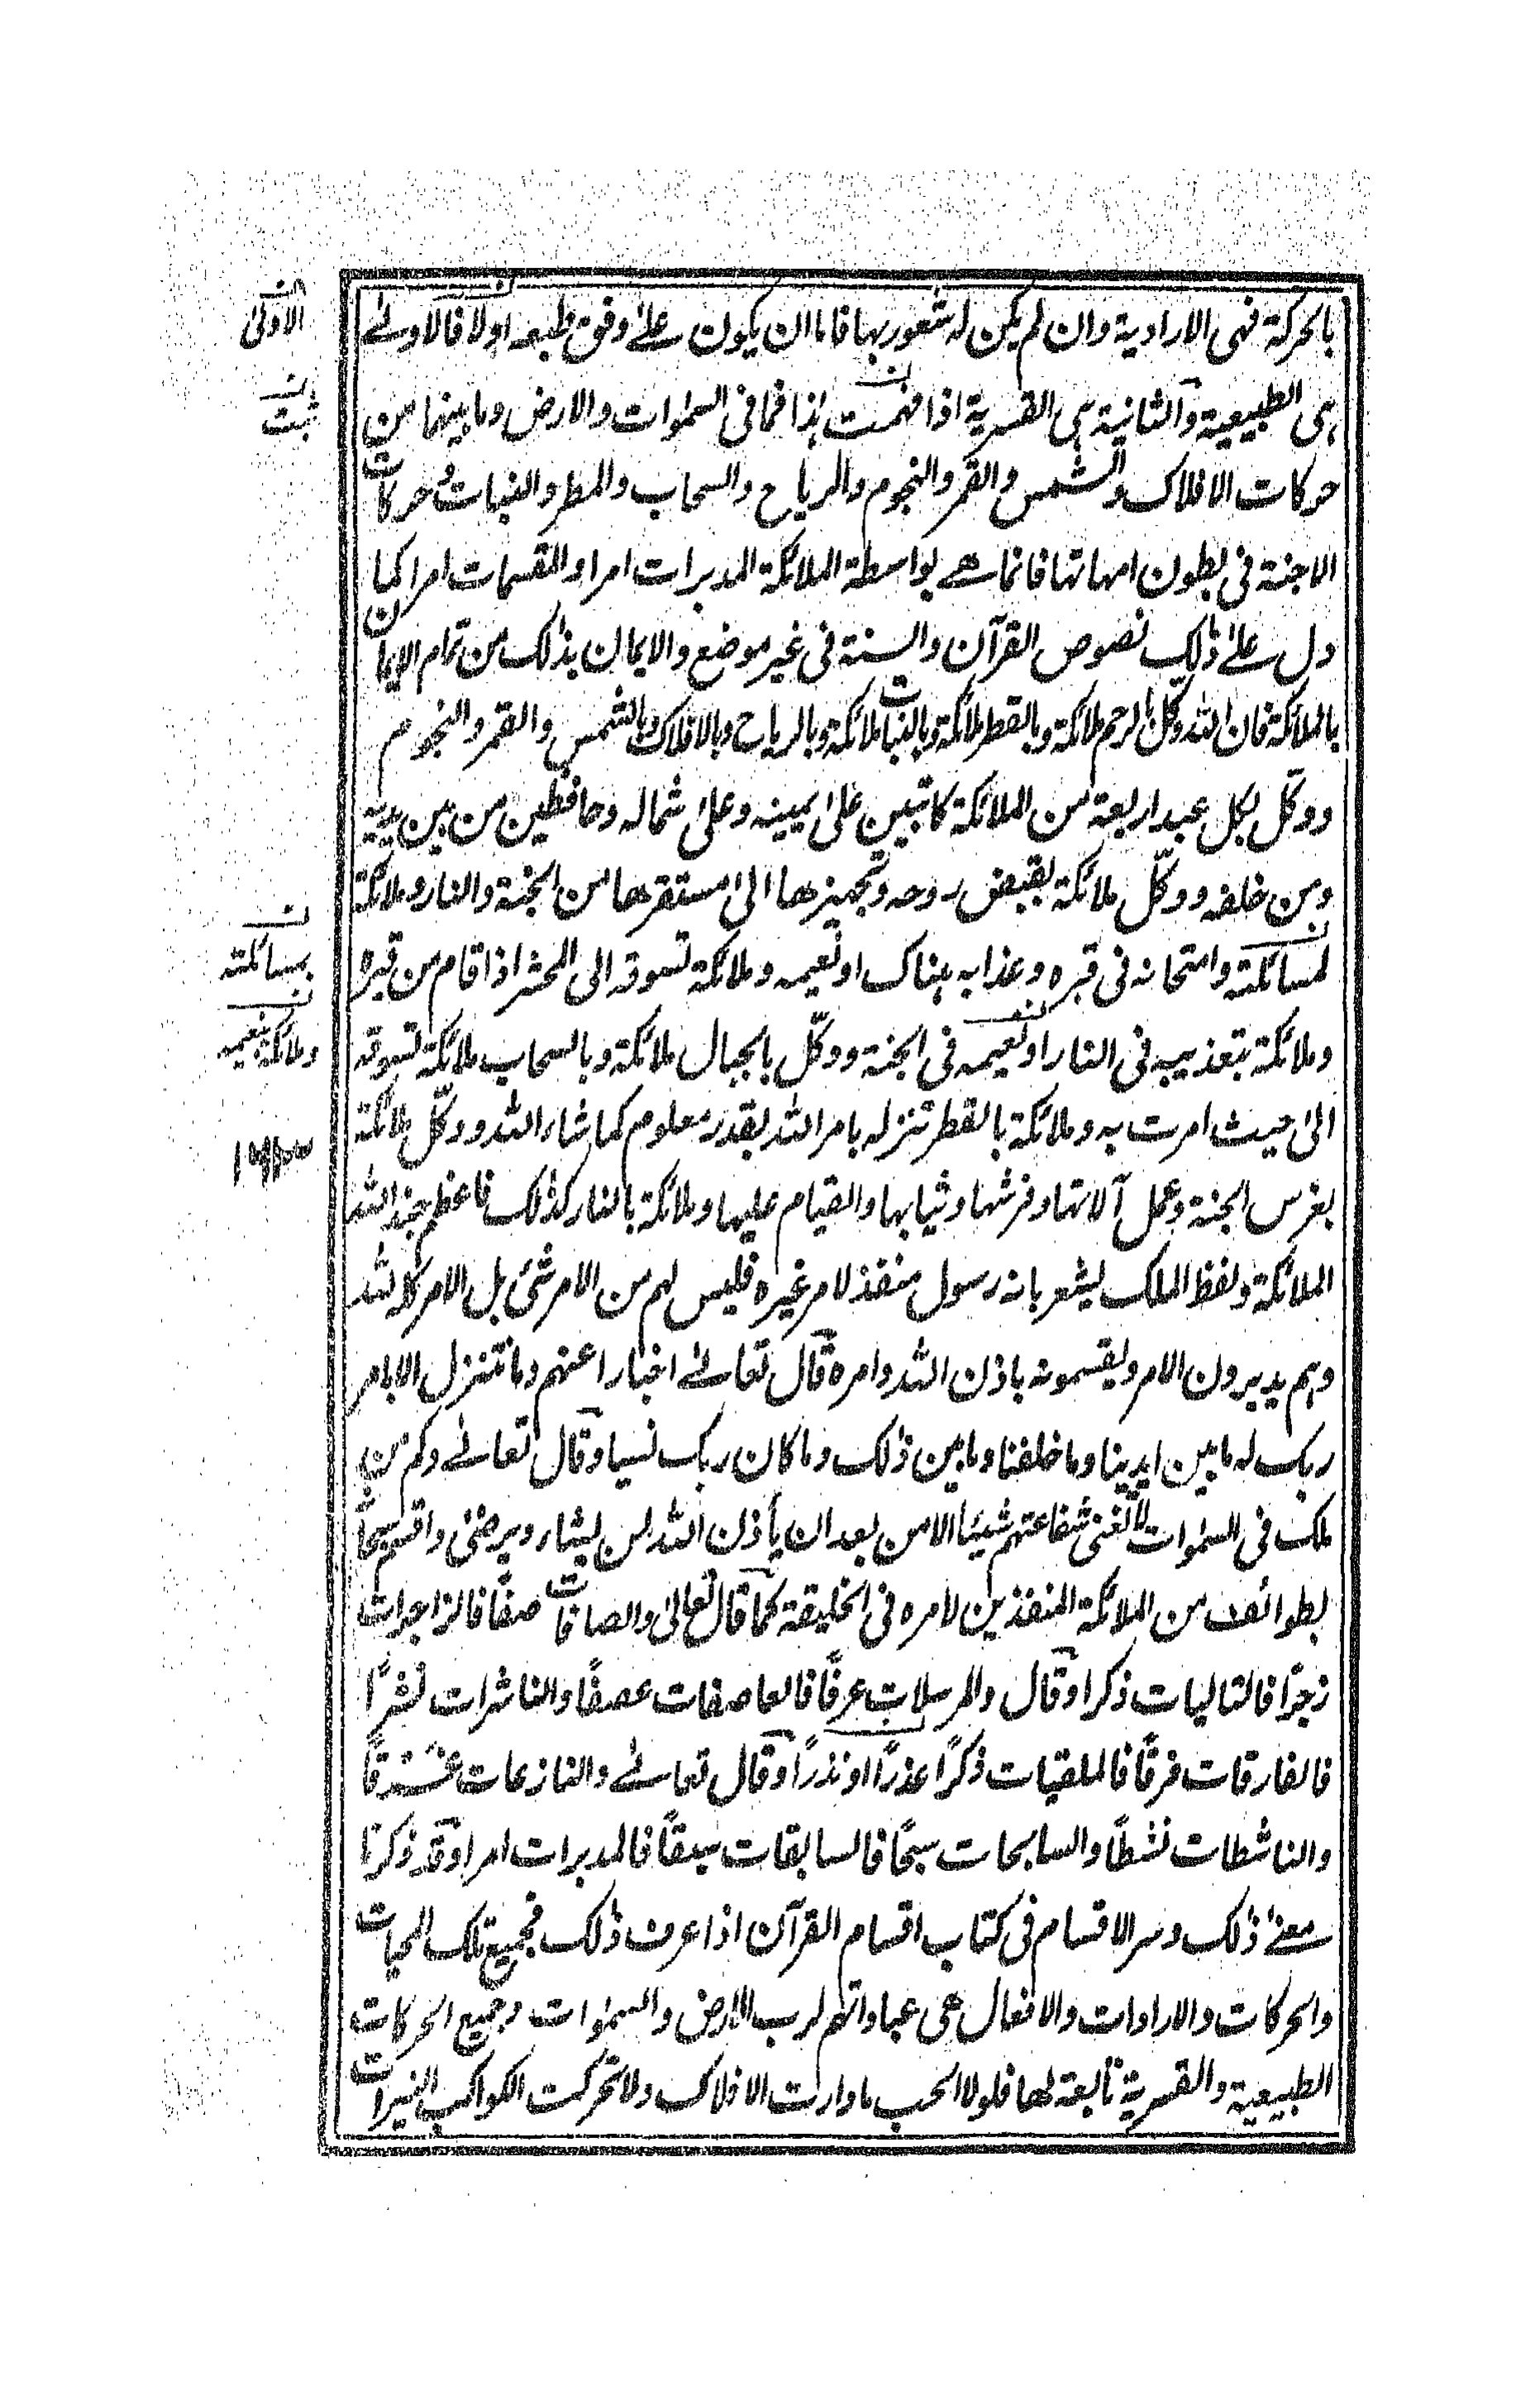 بالحركة فهى الارادية وان لم يكن له شعور بها فاما ان يكون على وفق طبعه اولا فالاولى
هى الطبيعية والثانية هى القسرية اذا فهمت هذا فما فى السموات والارض وما بينهما من
حركات الافلاك والشمس والقمر والنجوم والرياح والسحاب والمطر والنبات وحركات
الاجنة فى بطون امهاتها فانما هى بواسطة الملائكة المدبرات امرا والمقسمات امرا كما
دل على ذلك نصوص القرآن والسنة فى غير موضع والايمان بذلك من تمام الايمان
بالملائكة فان الله وكل بالرحم ملائكة وبالقطر ملائكة وبالنبات ملائكة وبالرياح وبالافلاك وبالشمس والقمر والنجوم
ووكل لكل عبد اربعة من الملائكة كاتبين على يمينه وعلى شماله وحافظين من بين يديه
ومن خلفه ووكّل ملائكة لقبض روحه وتجهيزها الى مستقرها من الجنة والنار وملائكة
لمسائلته وامتحانه فى قبره وعذابه هناك او نعيمه وملائكة تسوقه الى المحشر اذا قام من قبره
وملائكة بتعذيبه فى النار او نعيمه فى الجنة ووكّل بالجبال ملائكة وبالسحاب ملائكة تسوقه
الى حيث امرت به وملائكة بالقطر تنزله بامر الله بقدر معلوم كما شاء الله ووكّل ملائكة
بغرس الجنة وعمل آلاتها وفرشها وثيابها والقيام عليها وملائكة بالنار كذلك فاعظم جند الله
الملائكة ولفظ الملك يشعر بانه رسول منفذ لامر غيره فليس لهم من الامر شئ بل الامر كله لله
وهم يدبرون الامر ويقسمونه باذن الله وامره قال تعالى اخبارا عنهم وما نتنزل الا بامر
ربك له ما بين ايدينا وما خلفنا وما بين ذلك وما كان ربك نسيا وقال تعالى وكم من
ملك فى السموات لا تغنى شفاعتهم شيئا الا من بعد ان يأذن الله لمن يشاء ويرضى واقسم سبحانه
بطوائف من الملائكة المنفذين لامره فى الخليقة كما قال تعالى والصافات صفًا فالزاجرات
زجرًا فالتاليات ذكرا وقال والمرسلات عرفًا فالعاصفات عصفًا والناشرات نشرًا
فالفارقات فرقًا فالملقيات ذكرًا عذرًا او نذرًا وقال تعالى والنازعات غرقًا
والناشطات نشطًا والسابحات سبحًا فالسابقات سبقًا فالمدبرات امرا وقد ذكرنا
معنى ذلك وسر الاقسام فى كتاب اقسام القرآن اذا عرف ذلك فجميع تلك المحبات
والحركات والارادات والافعال هى عباداتهم لرب الارض والسموات وجميع الحركات
الطبيعية والقسرية تابعة لها فلولا الحب ما دارت الافلاك ولا تحركت الكواكب النيرات
الاولى
ثبت
بمسائلته
وملائكة بنعيمه